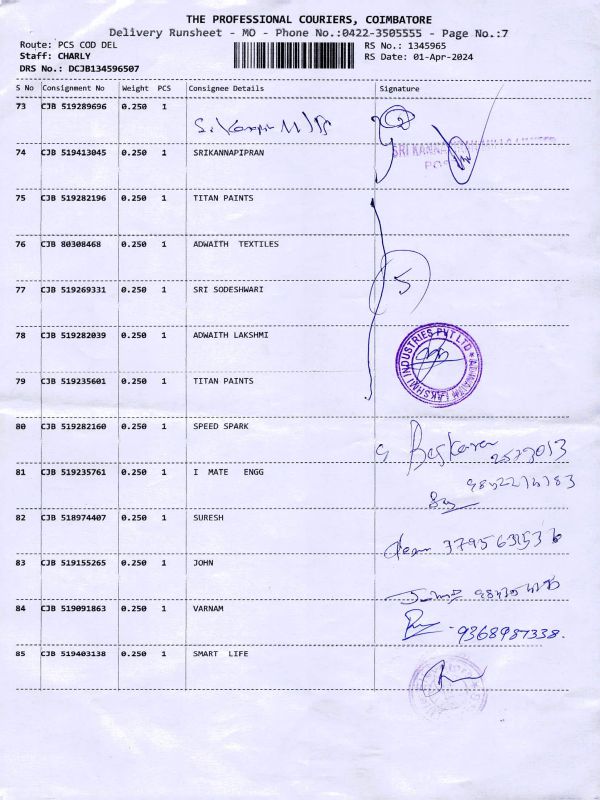 THE PROFESSIONAL COURIERS, COIMBATORE
Delivery Runsheet - MO - Phone No.:0422-3505555 - Page No.:7
Route: PCS COD DEL
RS No.: 1345965
Staff: CHARLY
RS Date: 01-Apr-2024
DRS No.: DCJB134596507
S No Consignment No Weight PCS Consignee Details Signature
73 CJB 519289696 0.250 1
74 CJB 519413045 0.250 1 SRIKANNAPIPRAN
75 CJB 519282196 0.250 1 TITAN PAINTS
76 CJB 80308468 0.250 1 ADWAITH TEXTILES
77 CJB 519269331 0.250 1 SRI SODESHWARI
5
78 CJB 519282039 0.250 1 ADWAITH LAKSHMI
LAKSHMI INDUSTRIES PVT LTD
79 CJB 519235601 0.250 1 TITAN PAINTS
80 CJB 519282160 0.250 1 SPEED SPARK
Baskaran
81 CJB 519235761 0.250 1 I MATE ENGG
82 CJB 518974407 0.250 1 SURESH
83 CJB 519155265 0.250 1 JOHN
84 CJB 519091863 0.250 1 VARNAM
9368987338.
85 CJB 519403138 0.250 1 SMART LIFE